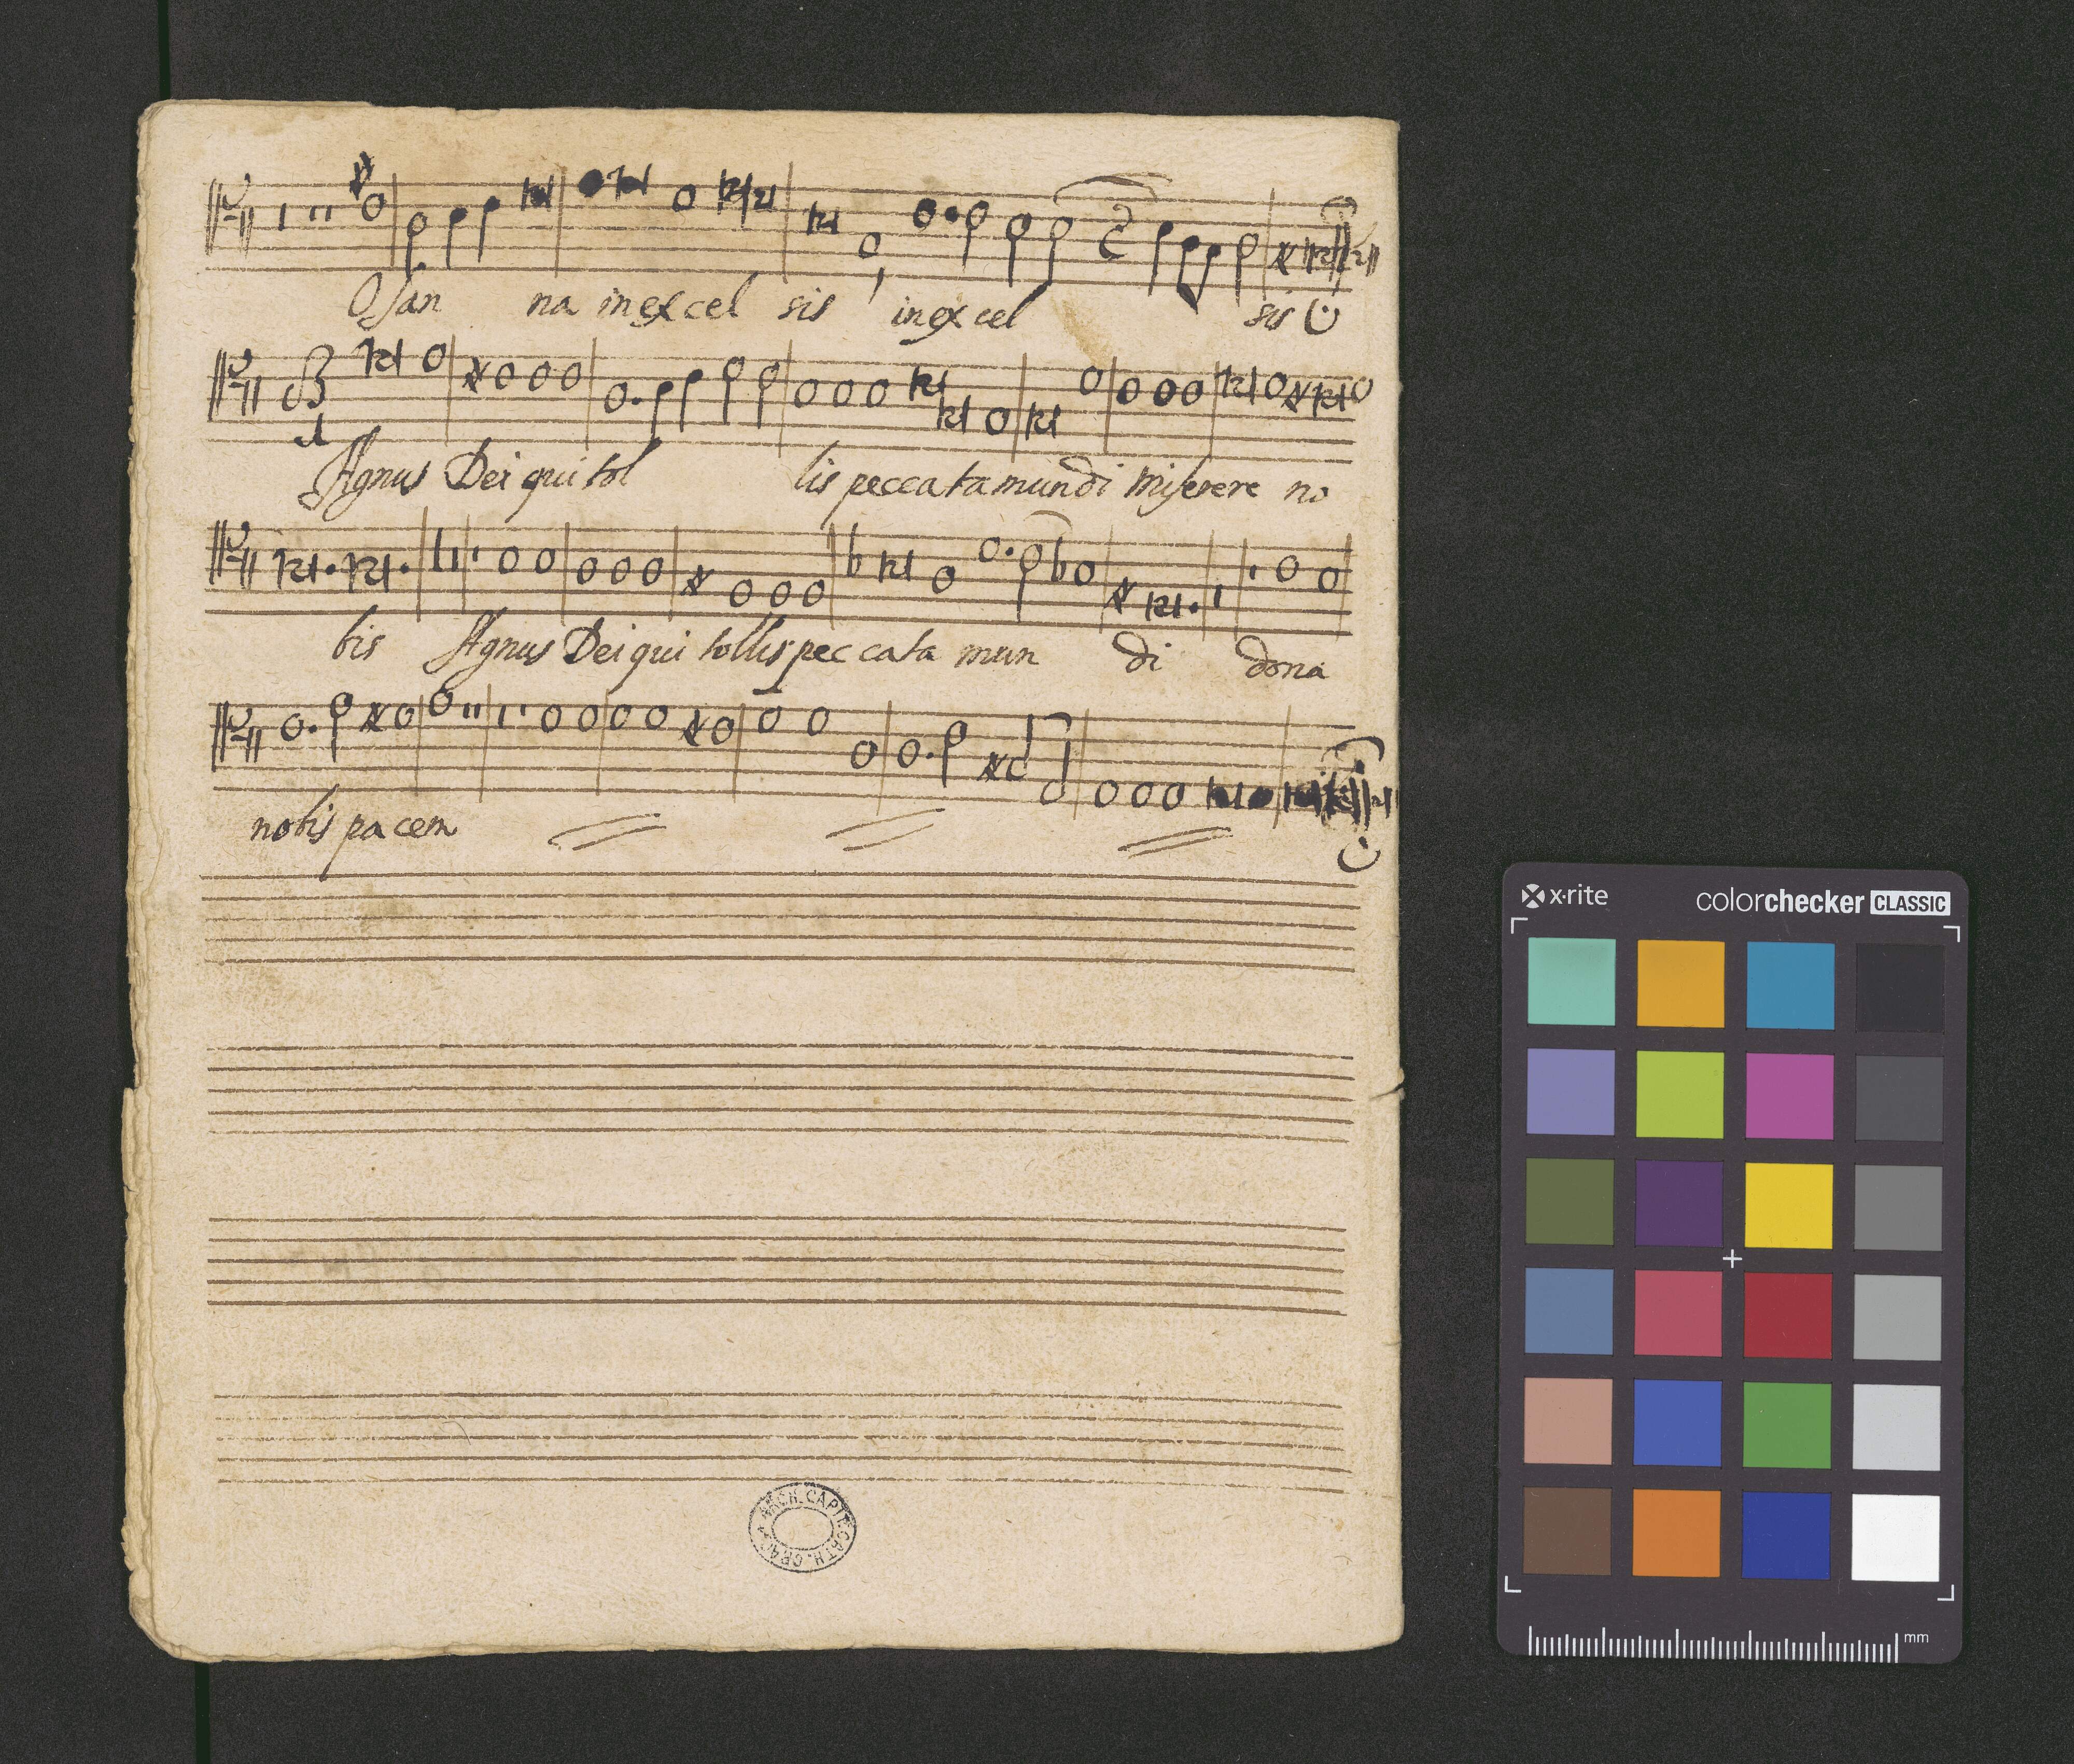 Osan na in excel sis in excel sis
Agnus Dei qui tol lis peccata mundi miserere no
bis Agnus Dei qui tollis pec cata mun di dona
nobis pa cem
ARCH. CAPIT. CATH. CRAC.
x·rite colorchecker CLASSIC
mm